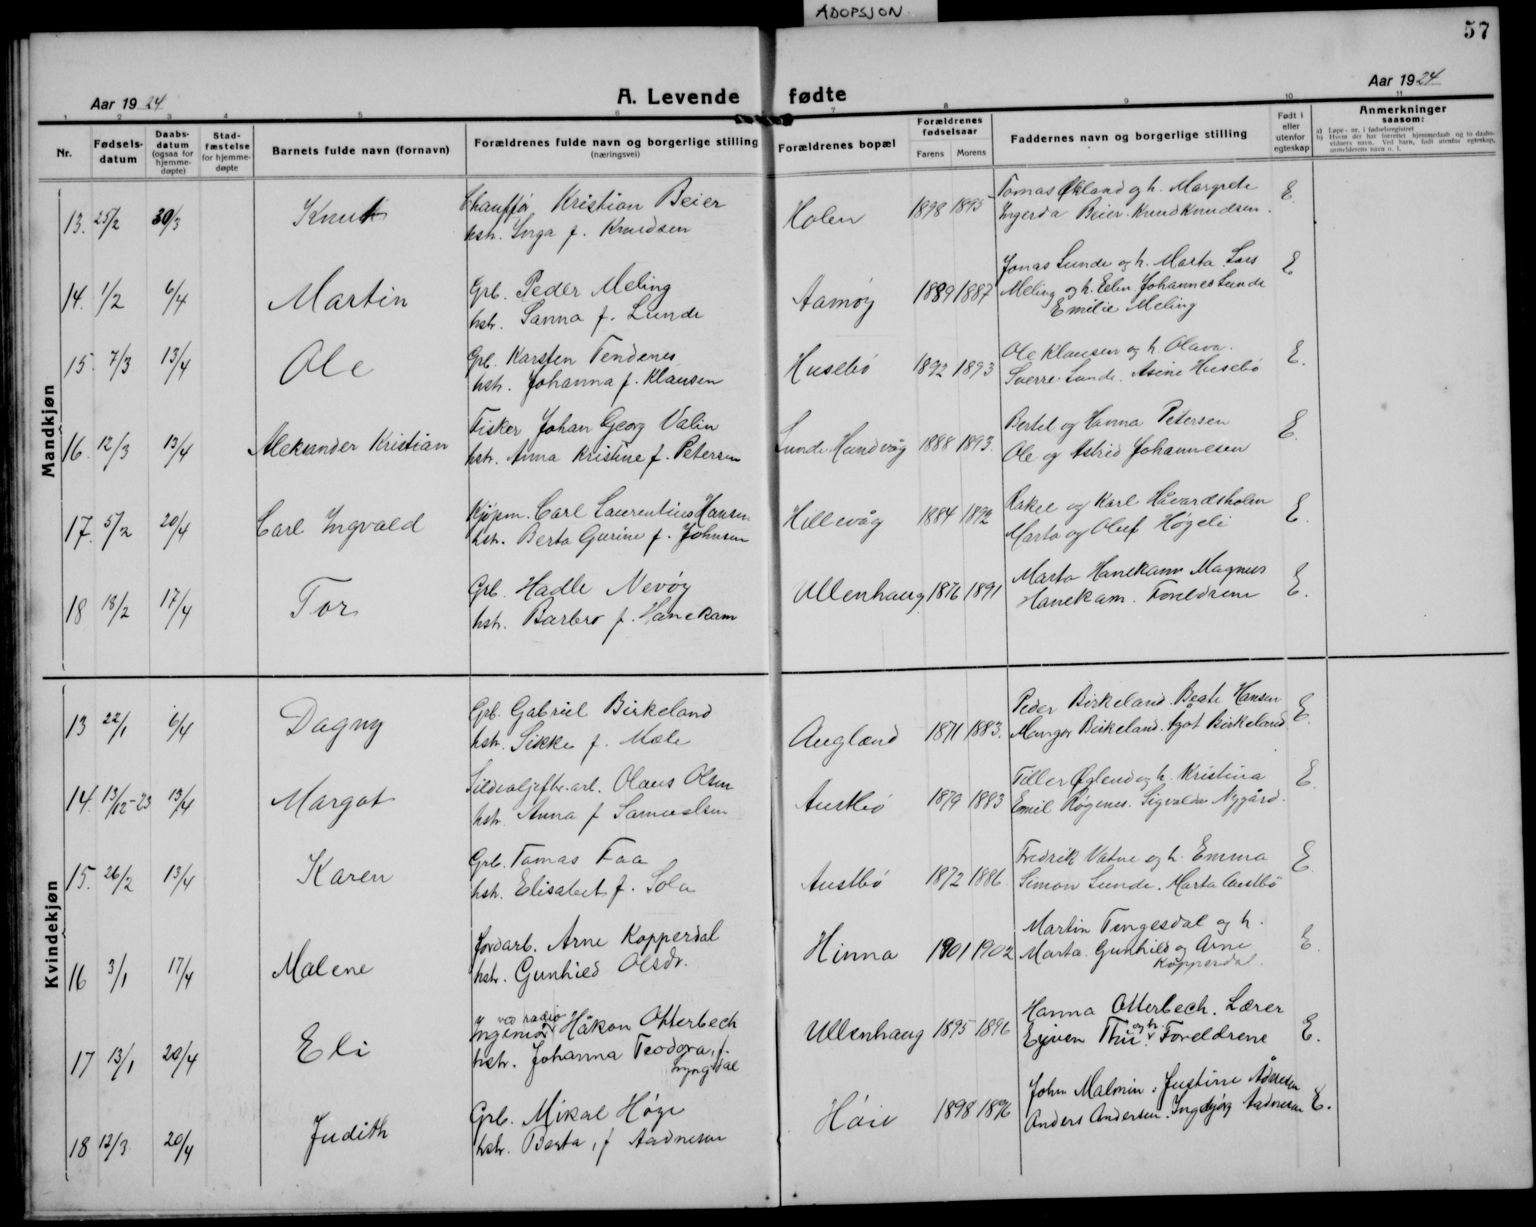 ADOPSJON.
57
Aar 1924
A. Levende fødte
Aar 1924
1 2 3 4 5 6 7 8 9 10 11
Nr.
Fødsels-datum
Daabs-datum (ogsaa for hjemme-døpte)
Stad-fæstelse for hjemme-døpte
Barnets fulde navn (fornavn)
Forældrenes fulde navn og borgerlige stilling (næringsvei)
Forældrenes bopæl
Forældrenes fødselsaar
Farens Morens
Faddernes navn og borgerlige stilling
Født i eller utenfor egteskap
Anmerkninger saasom:
a) Løpe-nr. i fødselsregistret
b) Hvem der har forrettet hjemmedaab og to daabsvidners navn. Ved barn, født utenfor egteskap, anmelderens navn o. l.
Mandkjøn
13. 25/2 30/3 Knut Chauffør Kristian Beier Holen 1898 1895 Tomas Økland og h. Margrete E.
hstr. Inga f. Knudsen Ingerda Beier. Knud Knudsen.
14. 1/2 6/4 Martin Grb. Peder Meling Aamøy 1889 1887 Jonas Lunde og h. Marta. Lars E
hstr. Sanna f. Lunde Meling og h. Elen Johannes Lunde
Emilie Meling
15. 7/3 13/4 Ole Grb. Karsten Tendenes Husebø 1892 1893 Ole Klausen og h. Olava. E.
hstr. Johanna f. Klausen Sverre Lunde. Asine Husebø
16. 12/3 13/4 Aleksander Kristian Fisker Johan Georg Valin Lunde Hundvåg 1888 1893. Bertel og Hanna Petersen E.
hstr. Anna Kristine f. Petersen Ole og Astrid Johannesen
17. 5/2 20/4 Carl Ingvald Kjøpm. Carl Laurentius Hansen Hillevåg 1884 1892 Rakel og Karl Håvardsholm E.
hstr. Berta Gurine f. Johnsen Marta og Oluf Høgeli
18 18/2 17/4 Tor Grb. Hadle Nevøy Ullenhaug 1876 1891 Marta Hanekam Magnus E.
hstr. Barbro f. Hanekam Hanekam. Foreldrene
Kvindekjøn
13 22/1 6/4 Dagny Grb. Gabriel Birkeland Augland 1871 1883. Peder Birkeland. Beate Hansen E.
hstr. Sikke f. Mæle Birkeland. Birkeland.
14. 13/12-23 13/4 Margot Olaus Olsen Austbø 1879 1883 Øglend og h. Kristina E
hstr. Anna f Samuelsen Emil Røgenes. Sigvalda Nygård.
15. 26/2 13/4 Karen Grb. Tomas Faa Austbø 1872 1886. Fredrik Vatne og h. Emma E
hstr. Elisabet f. Sola Simon Lunde. Marta Austbø
16 3/1 17/4 Malene Jordarb. Arne Kopperdal Hinna 1901 1902 Martin Tengesdal og h. E.
hstr. Gunhild Olsdr. Marta. Gunhild og Arne
Kopperdal.
17 13/1 20/4 Eli Ingeniør ved radio Håkon Otterbech Ullenhaug 1895 1896 Hanna Otterbech. Lærer E.
hstr. Johanna Teodora, f. Lyngdal Ejven Thu og h. Foreldrene
18 12/3 20/4 Judith Grb. Mikal Høie Høie 1898 1896 John Malmin. Justine Ådnesen E.
hstr. Berta, f Aadnesen Anders Andersen. Ingebjørg Aadnesen